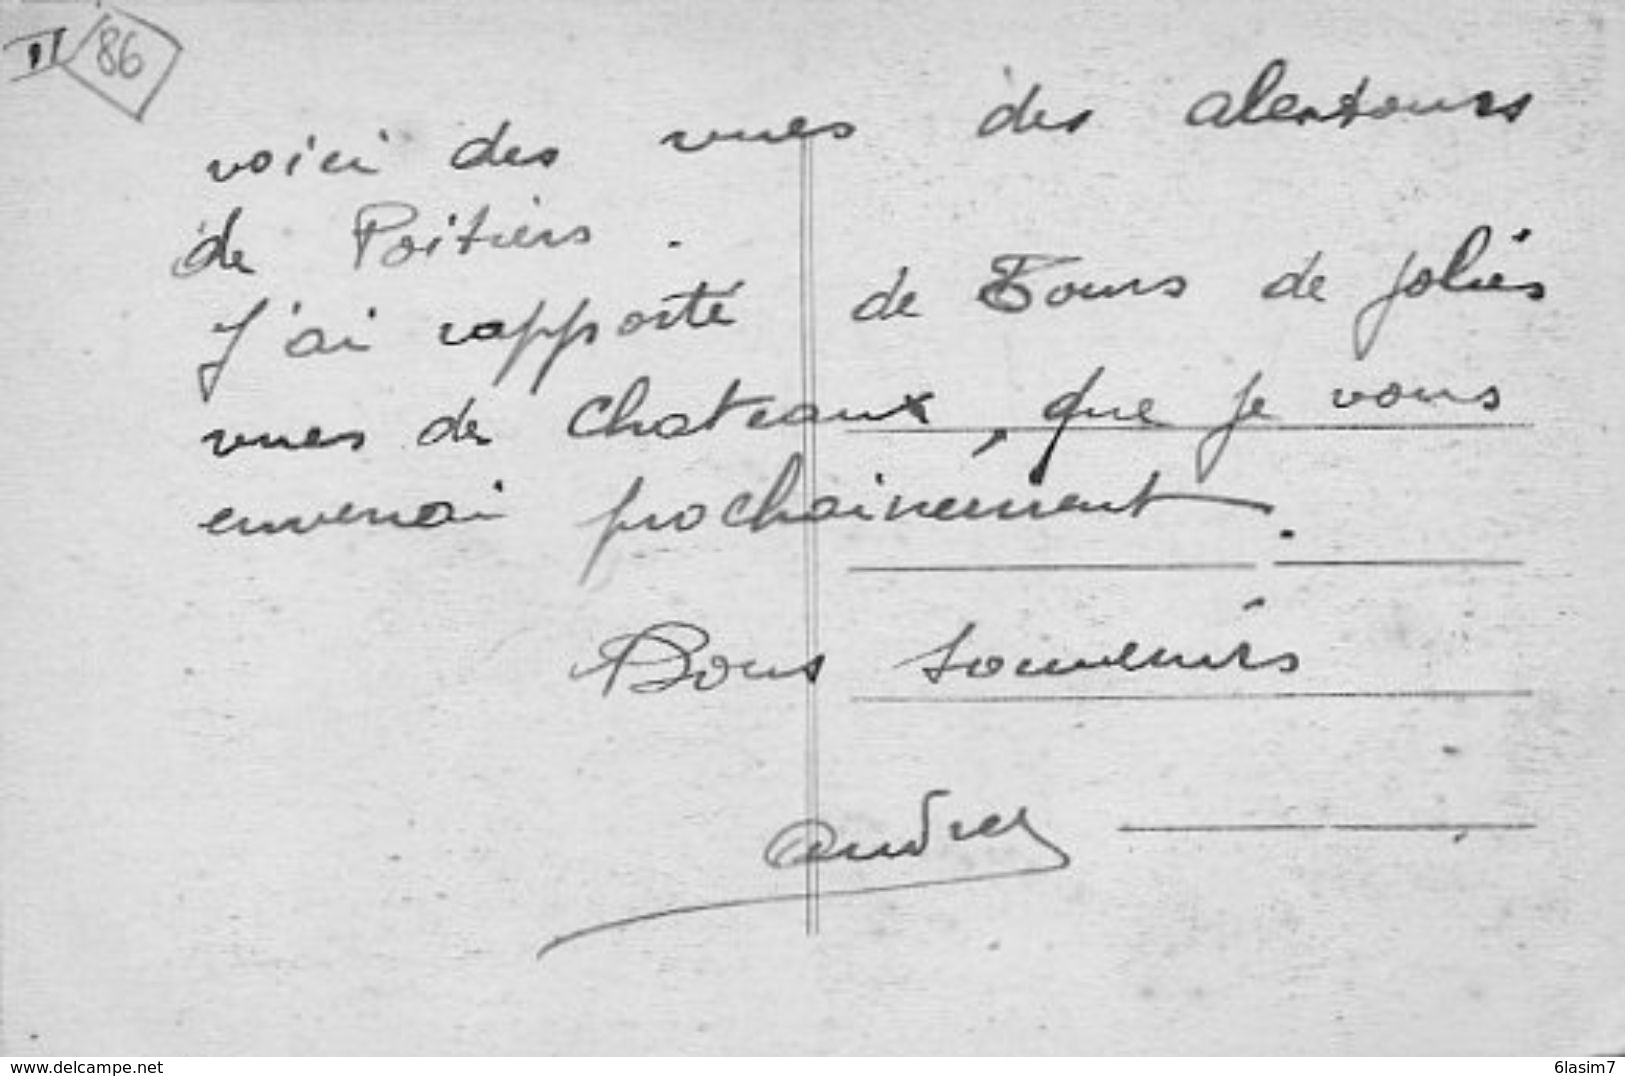 II 86
voici des vues des alentours
de Poitiers.
J'ai rapporté de Tours de jolies
vues de Chateaux, que je vous
enverrai prochainement.
Bons souvenirs
andree
www.delcampe.net 6lasim7